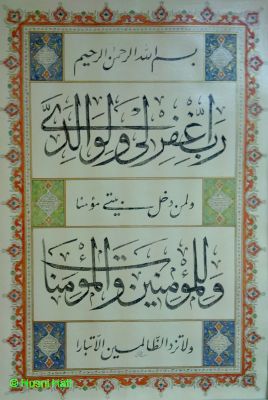 بسم الله الرحمن الرحيم
رب اغفر لي ولوالدي
ولمن دخل بيتي مؤمنا
وللمؤمنين والمؤمنات
ولا تزد الظالمين إلا تبارا
© Husni Hafi